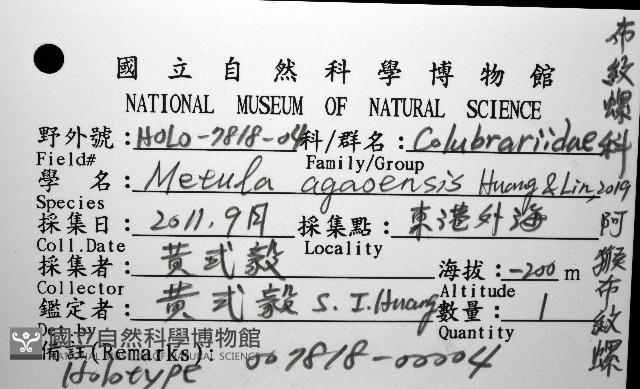 國立自然科學博物館
NATIONAL MUSEUM OF NATURAL SCIENCE
野外號：HOLO-7818-04 科/群名：Colubrariidae
Field# Family/Group
學 名：Metula agaoensis Huang & Lin, 2019
Species
採集日：2011.9月 採集點：東港外海
Coll.Date Locality
採集者：黃式毅 海拔：-200 m
Collector Altitude
鑑定者：黃式毅 S. I. Huang 數量：1
Det.by Quantity
備註(Remarks)： 007818-00004
Holotype
布紋螺科
阿猴布紋螺
國立自然科學博物館
NATIONAL MUSEUM OF NATURAL SCIENCE